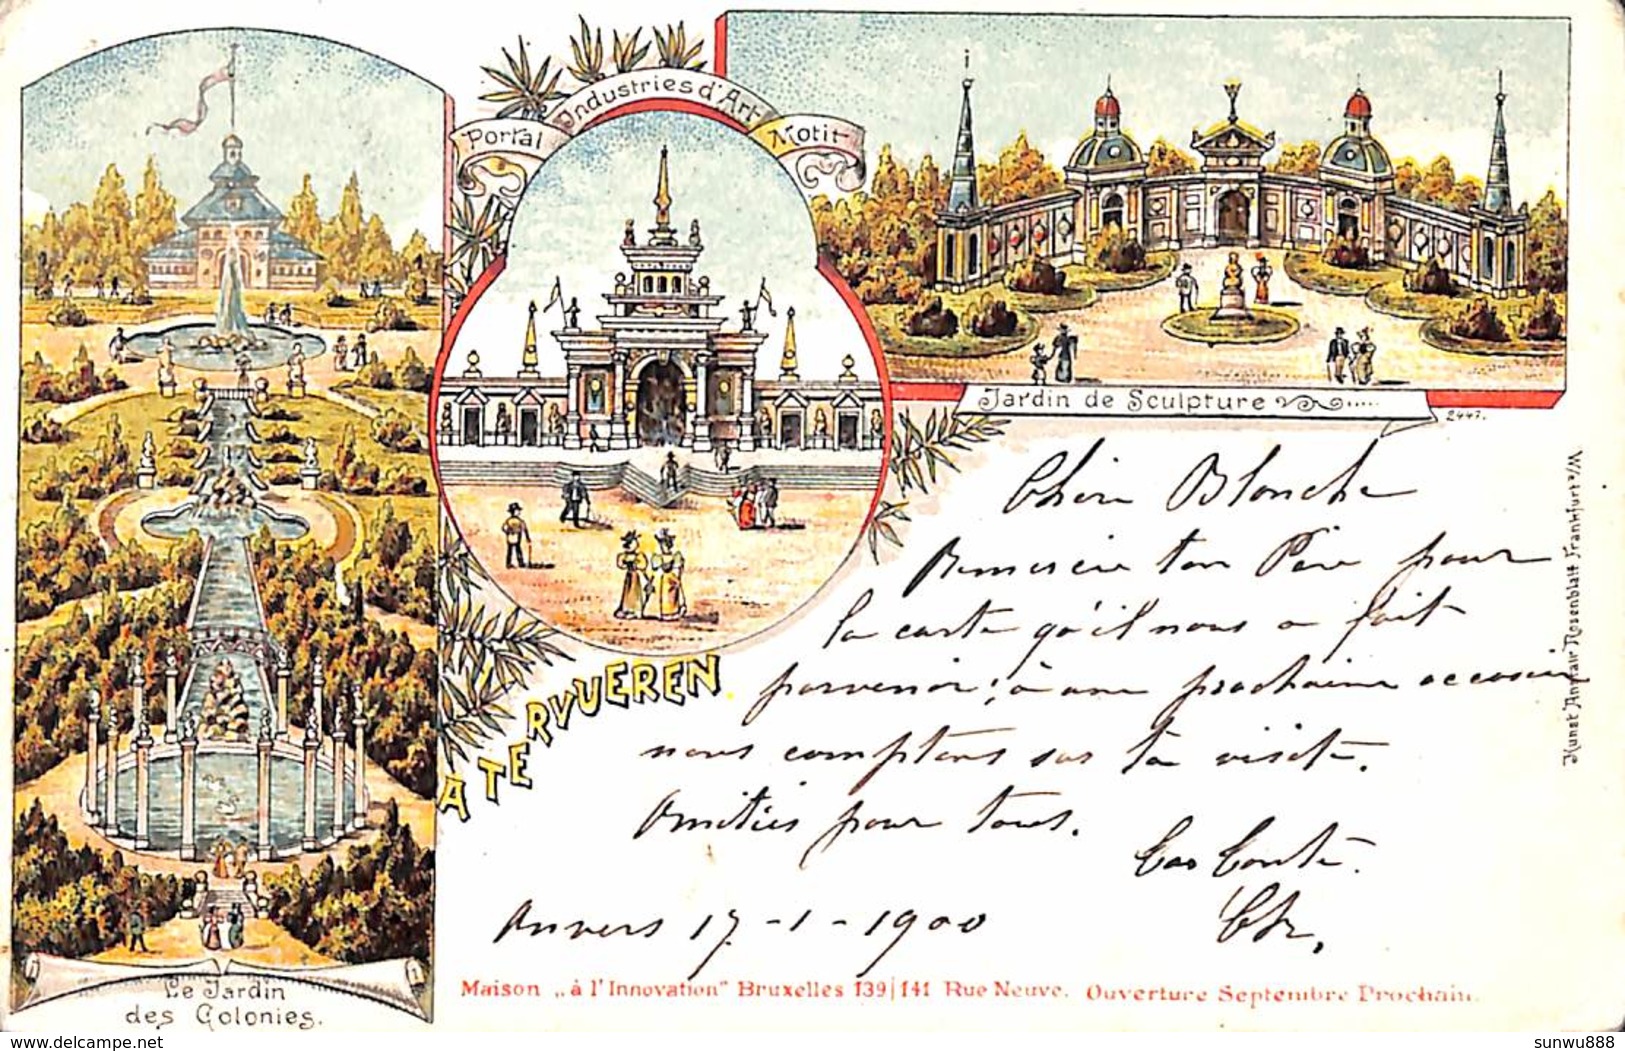 Portal Industries d'Art Motit
Jardin de Sculpture
2447.
Chère Blanche
Remercie ton Père pour
la carte qu'il nous a fait
parvenir; à une prochaine occasion
nous comptons sur ta visite.
Amitiés pour tous.
Anvers 17-1-1900
A TERVUEREN
Le Jardin
des Colonies.
Maison „à l'Innovation" Bruxelles 139/141 Rue Neuve. Ouverture Septembre Prochain.
Kunst Anstalt Rosenblatt Frankfurt a/M
delcampe.net
sunwu888